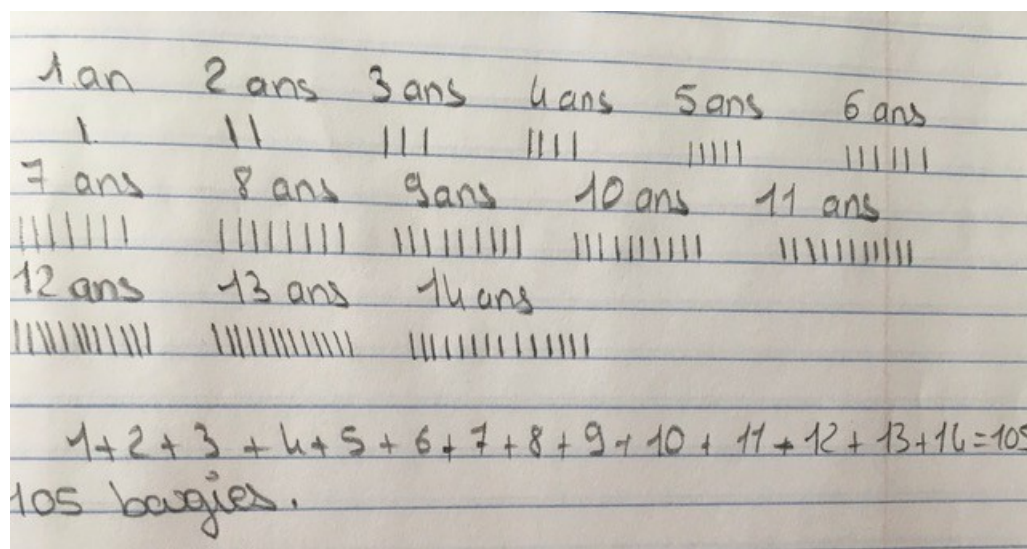 1 an 2 ans 3 ans 4 ans 5 ans 6 ans
7 ans 8 ans 9 ans 10 ans 11 ans
12 ans 13 ans 14 ans
1+2+3+4+5+6+7+8+9+10+11+12+13+14=105
105 bougies.